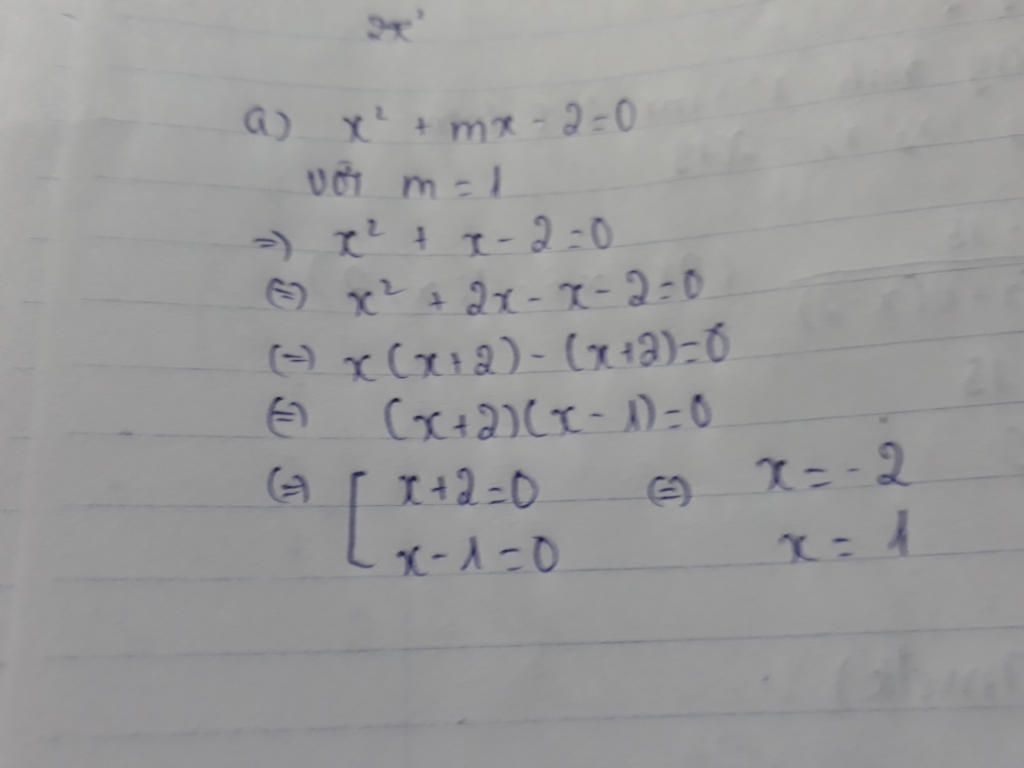 2x²
a) x² + mx - 2 = 0
với m = 1
=) x² + x - 2 = 0
(=) x² + 2x - x - 2 = 0
(=) x(x+2) - (x+2) = 0
(=) (x+2)(x - 1) = 0
(=) [ x+2 = 0 (=) x = -2
x - 1 = 0 x = 1